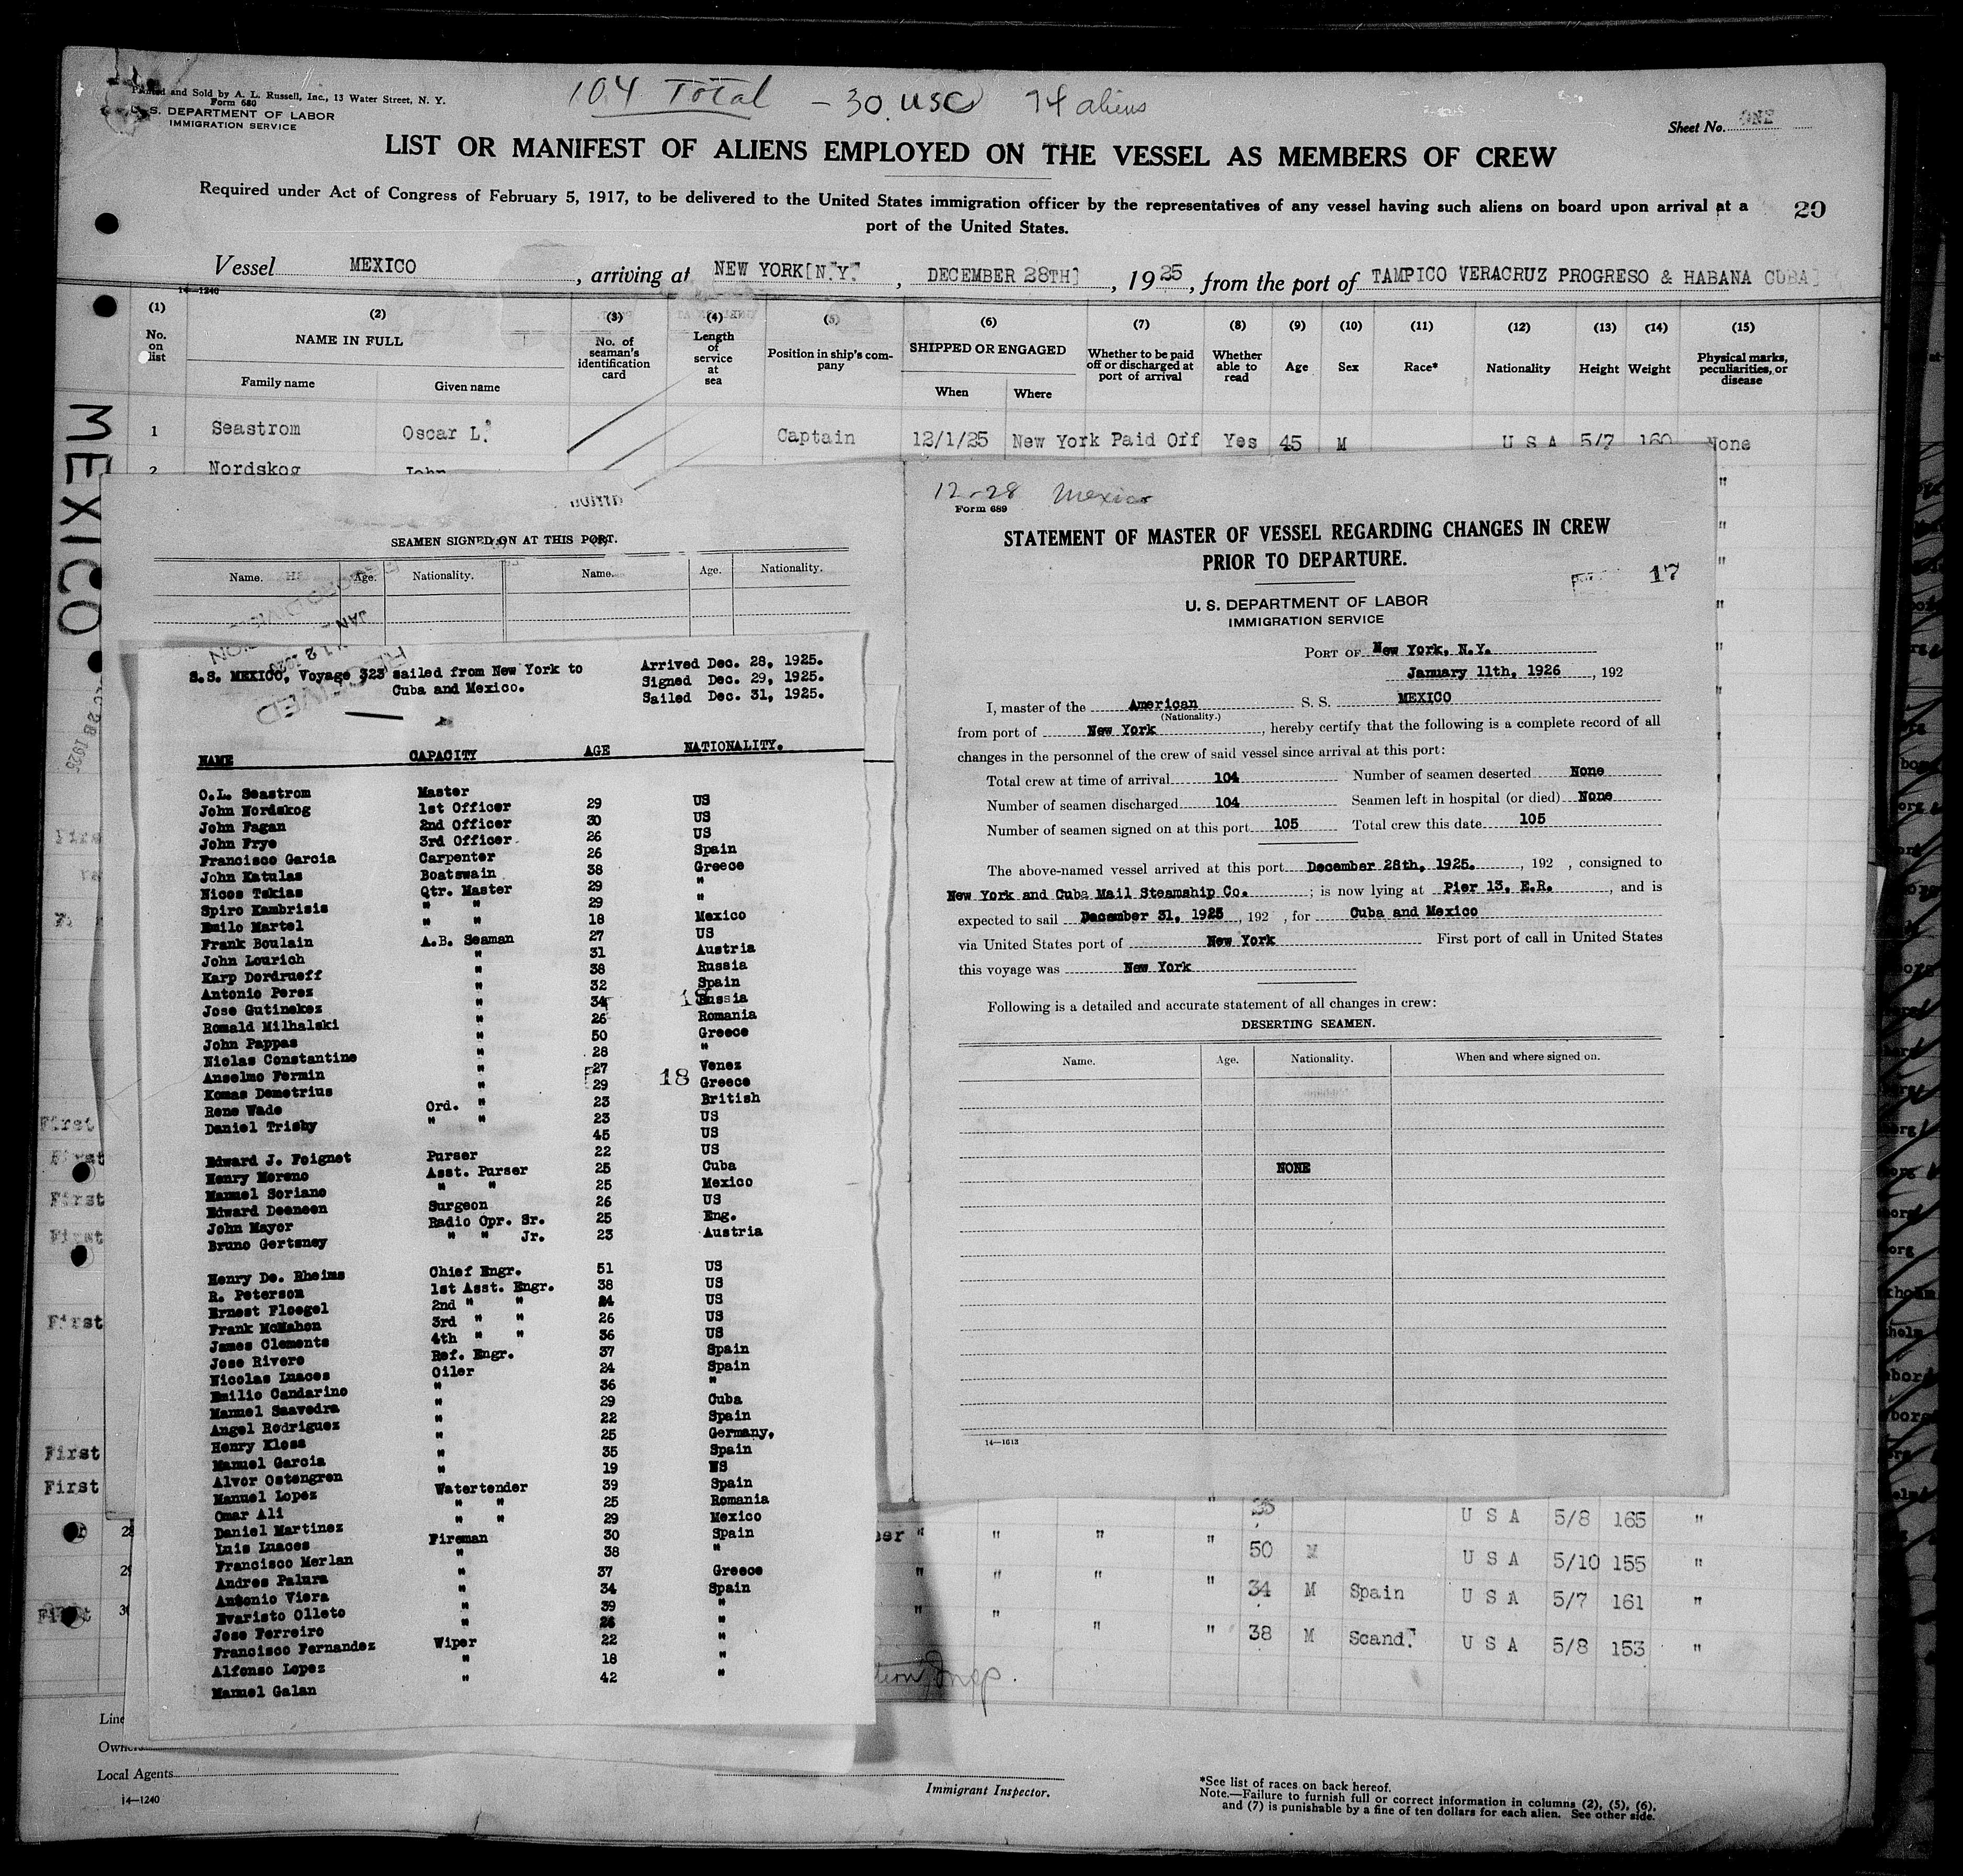 104 Total - 30 USC 74 aliens
Printed and Sold by A. L. Russell, Inc., 13 Water Street, N. Y.
Form 680
U. S. DEPARTMENT OF LABOR
IMMIGRATION SERVICE
Sheet No. ONE
LIST OR MANIFEST OF ALIENS EMPLOYED ON THE VESSEL AS MEMBERS OF CREW
Required under Act of Congress of February 5, 1917, to be delivered to the United States immigration officer by the representatives of any vessel having such aliens on board upon arrival at a
port of the United States.
20
Vessel MEXICO, arriving at NEW YORK[N.Y., DECEMBER 28TH], 1925, from the port of TAMPICO VERACRUZ PROGRESO & HABANA CUBA]
14—1240
(1) (2) (3) (4) (5) (6) (7) (8) (9) (10) (11) (12) (13) (14) (15)
No. on list
NAME IN FULL
Family name Given name
No. of seaman's identification card
Length of service at sea
Position in ship's company
SHIPPED OR ENGAGED
When Where
Whether to be paid off or discharged at port of arrival
Whether able to read
Age Sex Race* Nationality Height Weight
Physical marks, peculiarities, or disease
1 Seastrom Oscar L. Captain 12/1/25 New York Paid Off Yes 45 M U S A 5/7 160 None
2 Nordskog John
MEXICO
SEAMEN SIGNED ON AT THIS PORT.
Name. Age. Nationality. Name. Age. Nationality.
S.S. MEXICO, Voyage 323 sailed from New York to
Cuba and Mexico.
Arrived Dec. 28, 1925.
Signed Dec. 29, 1925.
Sailed Dec. 31, 1925.
NAME CAPACITY AGE NATIONALITY.
O.L. Seastrom Master
John Nordskog 1st Officer 29 US
John Fagan 2nd Officer 30 US
John Frye 3rd Officer 26 US
Francisco Garcia Carpenter 26 Spain
John Katulas Boatswain 38 Greece
Nicos Tskias Qtr. Master 29 "
Spiro Kambrisis " " 29 "
Emilo Martel " " 18 Mexico
Frank Boulain A.B. Seaman 27 US
John Lourich " 31 Austria
Karp Dordrueff " 38 Russia
Antonio Perez " 32 Spain
Jose Gutinekez " 34 Russia
Romald Milhalski " 26 Romania
John Pappas " 50 Greece
Niolas Constantine " 28 "
Anselmo Fermin " 27 Venez
Komas Demetrius " 29 Greece
Rene Wade Ord. " 23 British
Daniel Trisby " " 23 US
45 US
Edward J. Feignet Purser 22 US
Henry Moreno Asst. Purser 25 Cuba
Manuel Soriano " " 25 Mexico
Edward Deeneen Surgeon 26 US
John Mayor Radio Opr. Sr. 25 Eng.
Bruno Gertsney " " Jr. 23 Austria
Henry De. Rheims Chief Engr. 51 US
R. Peterson 1st Asst. Engr. 38 US
Ernest Floegel 2nd " " 24 US
Frank McMahon 3rd " " 26 US
James Clements 4th " " 36 US
Jose Rivero Ref. Engr. 37 Spain
Nicolas Luaces Oiler 24 Spain
Emilio Candarino " 36 "
Manuel Saavedra " 29 Cuba
Angel Rodriguez " 22 Spain
Henry Kless " 25 Germany.
Manuel Garcia " 35 Spain
Alvor Ostengren " 19 US
Manuel Lopez Watertender 39 Spain
Omar Ali " " 25 Romania
Daniel Martinez " " 29 Mexico
Luis Luaces Fireman 30 Spain
Francisco Merlan " 38 "
Andres Palura " 37 Greece
Antonio Viera " 34 Spain
Evaristo Olleto " 39 "
Jose Ferreiro " 26 "
Francisco Fernandez Wiper 22 "
Alfonso Lopez " 18 "
Manuel Galan " 42 "
18
18
12-28 Mexico
Form 689
STATEMENT OF MASTER OF VESSEL REGARDING CHANGES IN CREW
PRIOR TO DEPARTURE.
17
U. S. DEPARTMENT OF LABOR
IMMIGRATION SERVICE
PORT OF New York, N.Y.
January 11th, 1926, 192
I, master of the American S. S. MEXICO
(Nationality.)
from port of New York, hereby certify that the following is a complete record of all
changes in the personnel of the crew of said vessel since arrival at this port:
Total crew at time of arrival 104 Number of seamen deserted None
Number of seamen discharged 104 Seamen left in hospital (or died) None
Number of seamen signed on at this port 105 Total crew this date 105
The above-named vessel arrived at this port December 28th, 1925., 192 , consigned to
New York and Cuba Mail Steamship Co.; is now lying at Pier 13, E.R., and is
expected to sail December 31, 1925, 192 , for Cuba and Mexico
via United States port of New York First port of call in United States
this voyage was New York
Following is a detailed and accurate statement of all changes in crew:
DESERTING SEAMEN.
Name. Age. Nationality. When and where signed on.
NONE
14—1613
35 U S A 5/8 165 "
" " " " 50 M U S A 5/10 155 "
" " " " 34 M Spain U S A 5/7 161 "
" " " " 38 M Scand. U S A 5/8 153 "
First
First
First
First
First
First
First
Line
Owners
Local Agents
14—1240
Immigrant Inspector.
*See list of races on back hereof.
Note.—Failure to furnish full or correct information in columns (2), (5), (6),
and (7) is punishable by a fine of ten dollars for each alien. See other side.